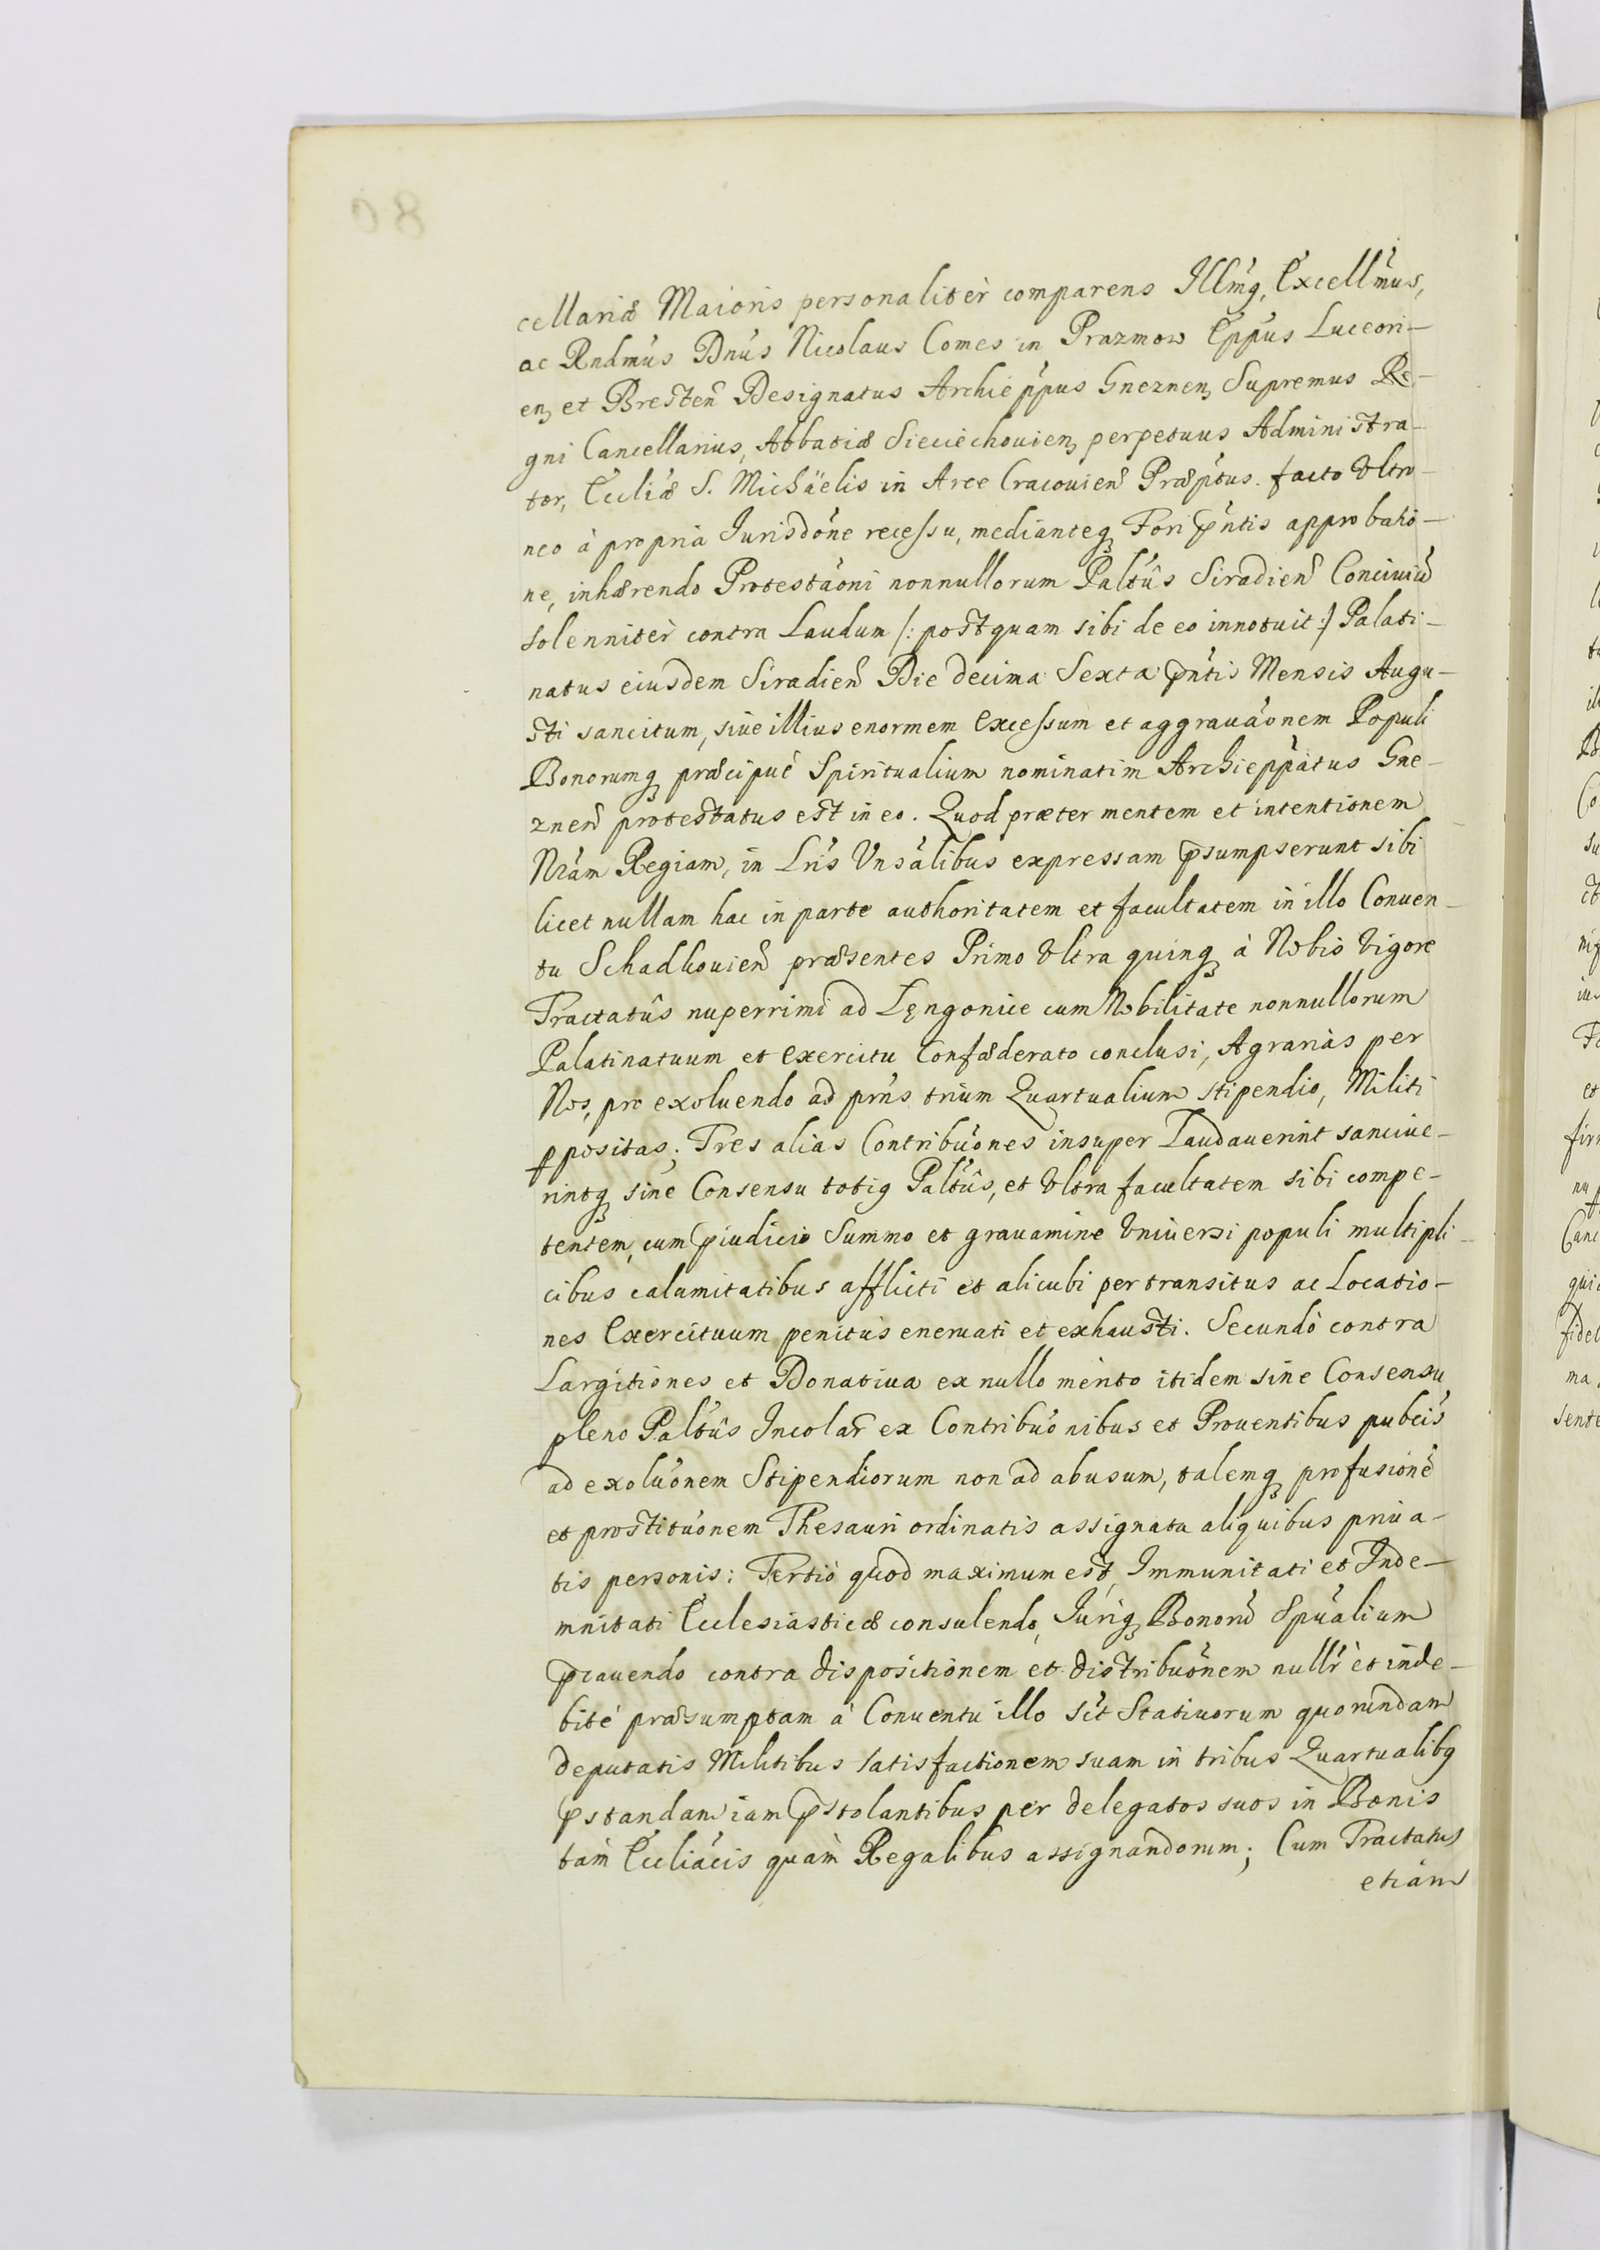 cellariæ Maioris personalitèr comparens Illm̃9, Excellm̃us,
ac Rndmũs Dnũs Nicolaus Comes in Prazmow Epp̃us Luceori-
en, et Bresten̄ Designatus Archiepp̃us Gneznen, Supremus Re-
gni Cancellarius, Abbatiæ Sieciechouien, perpetuus Administra-
tor, Eccliæ S. Michäelis in Arce Cracouien̄ Præptus. facto Vltro-
neo à proprià Jurisdõne recessu, medianteq3 Fori p̃ntis approbatio-
ne, inhærendo Protestãoni nonnullorum Paltũs Siradien̄ Conciuiũ
solennitèr contra Laudum /: postquam sibi de eo innotuit :/ Palati-
natus eiusdem Siradien̄ Die decima Sexta p̃ntis Mensis Augu-
sti sancitum, siue illius enormem excessum et aggrauãonem Populi
Bonorumq3 præcipuè Spiritualium nominatim Archiepp̃atus Gne-
znen̄ protestatus est in eo. Quod præter mentem et intentionem
Nr̃am Regiam, in Lr̃is Vnsãlibus expressam p̄sumpserunt sibi
licet nullam hac in parte authoritatem et facultatem in illo Conuen-
tu Schadkouien̄ præsentes Primo Vltra quinq3 à Nobis Vigore
Tractatûs nuperrimi ad Lęngonice cum Nobilitate nonnullorum
Palatinatuum et exercitu Confæderato conclusi, Agrariàs per
Nos, pro exoluendo ad prn̄s trium Quartualium stipendio, Militi
p̱positas; Tres alias Contribuõnes insuper Laudauerint sanciue-
rintq3 sine Consensu toti9 Paltũs, et Vltra facultatem sibi compe-
tentem, cum p̄iudicio Summo et grauamine Vniuersi populi multipli-
cibus calamitatibus afflicti et alicubi per transitus ac Locatio-
nes Exercituum penitùs eneruati et exhausti. Secundò contra
Largitiones et Donatiua ex nullo merito itidem sine Consensu
pleno Paltũs Incolar̄ ex Contribuõnibus et Prouentibus pubcis
ad exoluõnem Stipendiorum non ad abusum, talemq3 profusionẽ
et prostituõnem Thesauri ordinatis assignata aliquibus priua-
tis personis: Tertiò quod maximum est, Immunitati et Inde-
mnitati Ecclesiasticæ consulendo, Juriq3 Bonorũ Spũalium
p̄cauendo contra dispositionem et distribuõnem nullr̃ et inde-
bitè præsumptam à Conuentu illo sit Statiuorum quorundam
deputatis Militibus satisfactionem suam in tribus Quartualib9
p̄standam iam p̄stolantibus per delegatos suos in Bonis
tàm Eccliãcis quàm Regalibus assignandorum; Cum Tractatus
etiàm